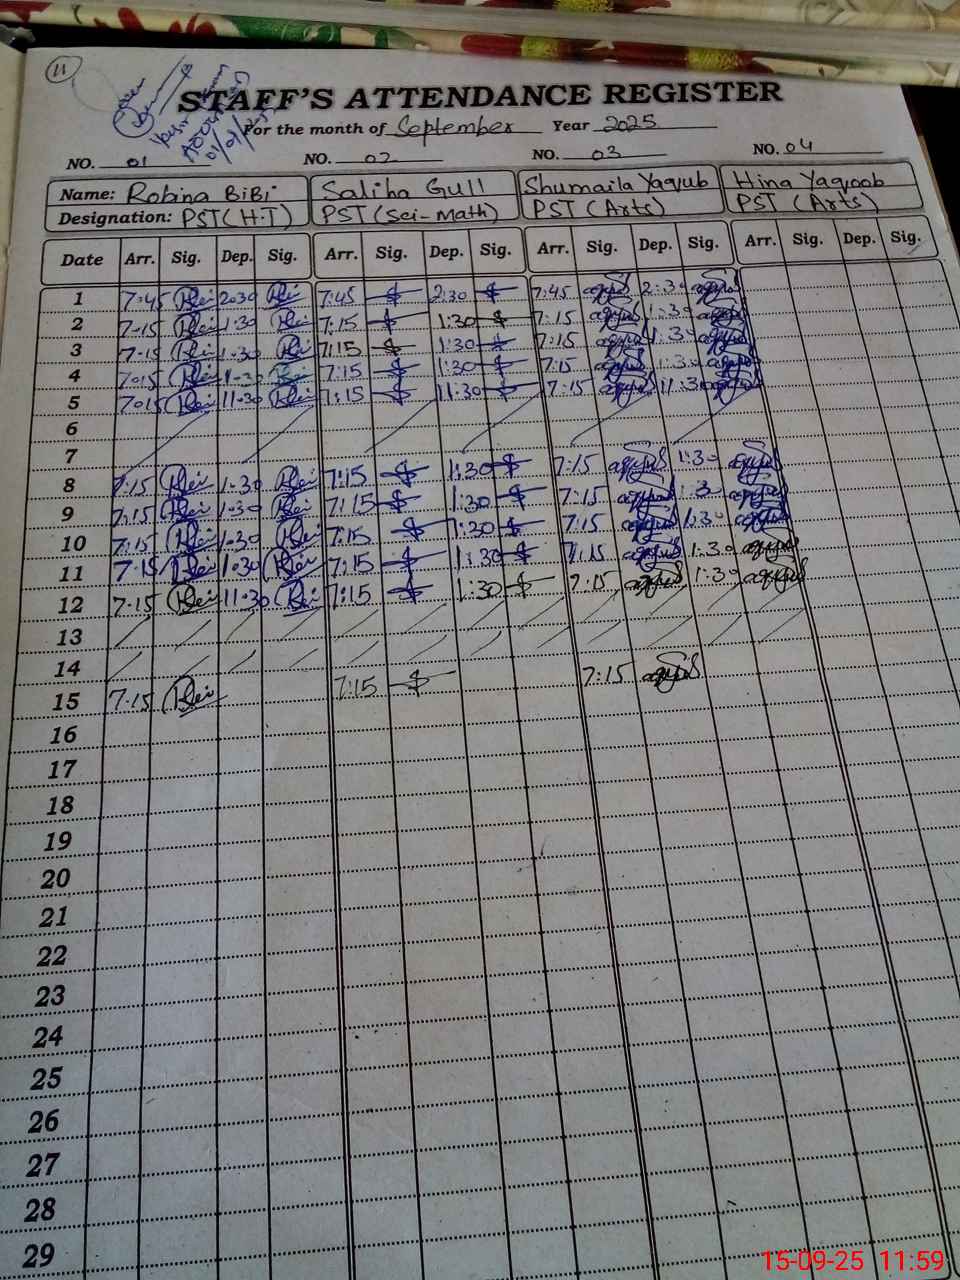 11
STAFF'S ATTENDANCE REGISTER
For the month of September Year 2025
01/09/25
NO. 01 NO. 02 NO. 03 NO. 04
Name: Robina BiBi Saliha Gull Shumaila Yaqub Hina Yaqoob
Designation: PST(H.T) PST(Sci-Math) PST (Arts) PST (Arts)
Date Arr. Sig. Dep. Sig. Arr. Sig. Dep. Sig. Arr. Sig. Dep. Sig. Arr. Sig. Dep. Sig.
1 7:45 2:30 7:45 2:30 7:45 2:30
2 7-15 1:30 7:15 1:30 7:15 1:30
3 7-15 1-30 7:15 1:30 7:15 1:30
4 7:15 1-30 7:15 1:30 7:15 1:30
5 7:15 11-30 7:15 11:30 7:15 11:30
6
7
8 7:15 1-30 7:15 1:30 7:15 1:30
9 7:15 1:30 7:15 1:30 7:15 1:30
10 7:15 1-30 7:15 1:30 7:15 1:30
11 7-15 1:30 7:15 1:30 7:15 1:30
12 7-15 11-30 7:15 1:30 7:15 1:30
13
14
15 7-15 7:15 7:15
16
17
18
19
20
21
22
23
24
25
26
27
28
29
15-09-25 11:59